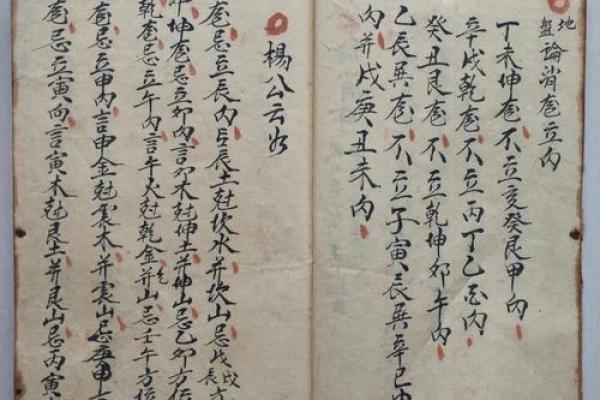 地盤論消龍立向
丁未坤龍不立亥癸艮甲向
辛戌乾龍不立丙丁乙酉向
癸丑艮龍不立乾坤卯午向
乙辰巽龍不立子寅辰巽辛巳申
向并戌庚丑未向
楊公云坎
龍忌立辰向言辰土尅坎水并坎山忌戊戌辰方
坤龍忌立卯向言卯木尅坤土并坤山忌乙卯方位
乾龍忌立午向言午火尅乾金并乾山忌壬午方位
龍忌立申向言申金尅震木并震山忌庚申
龍忌立寅向言寅木尅艮土并艮山忌丙寅